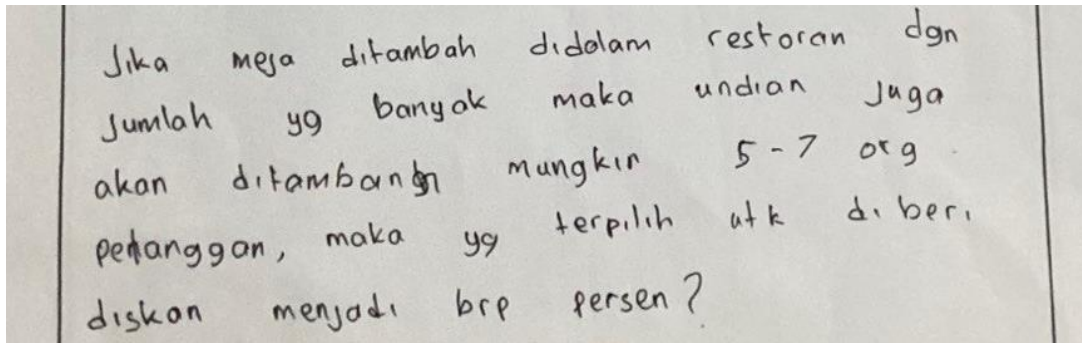 Jika meja ditambah didalam restoran dgn
Jumlah yg banyak maka undian Juga
akan ditambah mungkin 5-7 org
pelanggan, maka yg terpilih utk diberi
diskon menjadi brp persen?